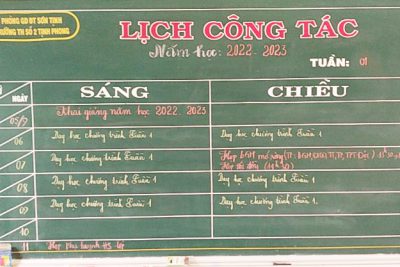 PHÒNG GD-ĐT SƠN TỊNH
TRƯỜNG TH SỐ 2 TỊNH PHONG
LỊCH CÔNG TÁC
Năm học: 2022-2023
TUẦN: 01
NGÀY SÁNG CHIỀU
05/9 Khai giảng năm học 2022-2023
06 Dạy học chương trình Tuần 1 Dạy học chương trình Tuần 1
07 Dạy học chương trình Tuần 1 Họp BGH mở rộng
Họp
08 Dạy học chương trình Tuần 1 Dạy học chương trình Tuần 1
09 Dạy học chương trình Tuần 1 Dạy học chương trình Tuần 1
10
11 Họp phụ huynh HS